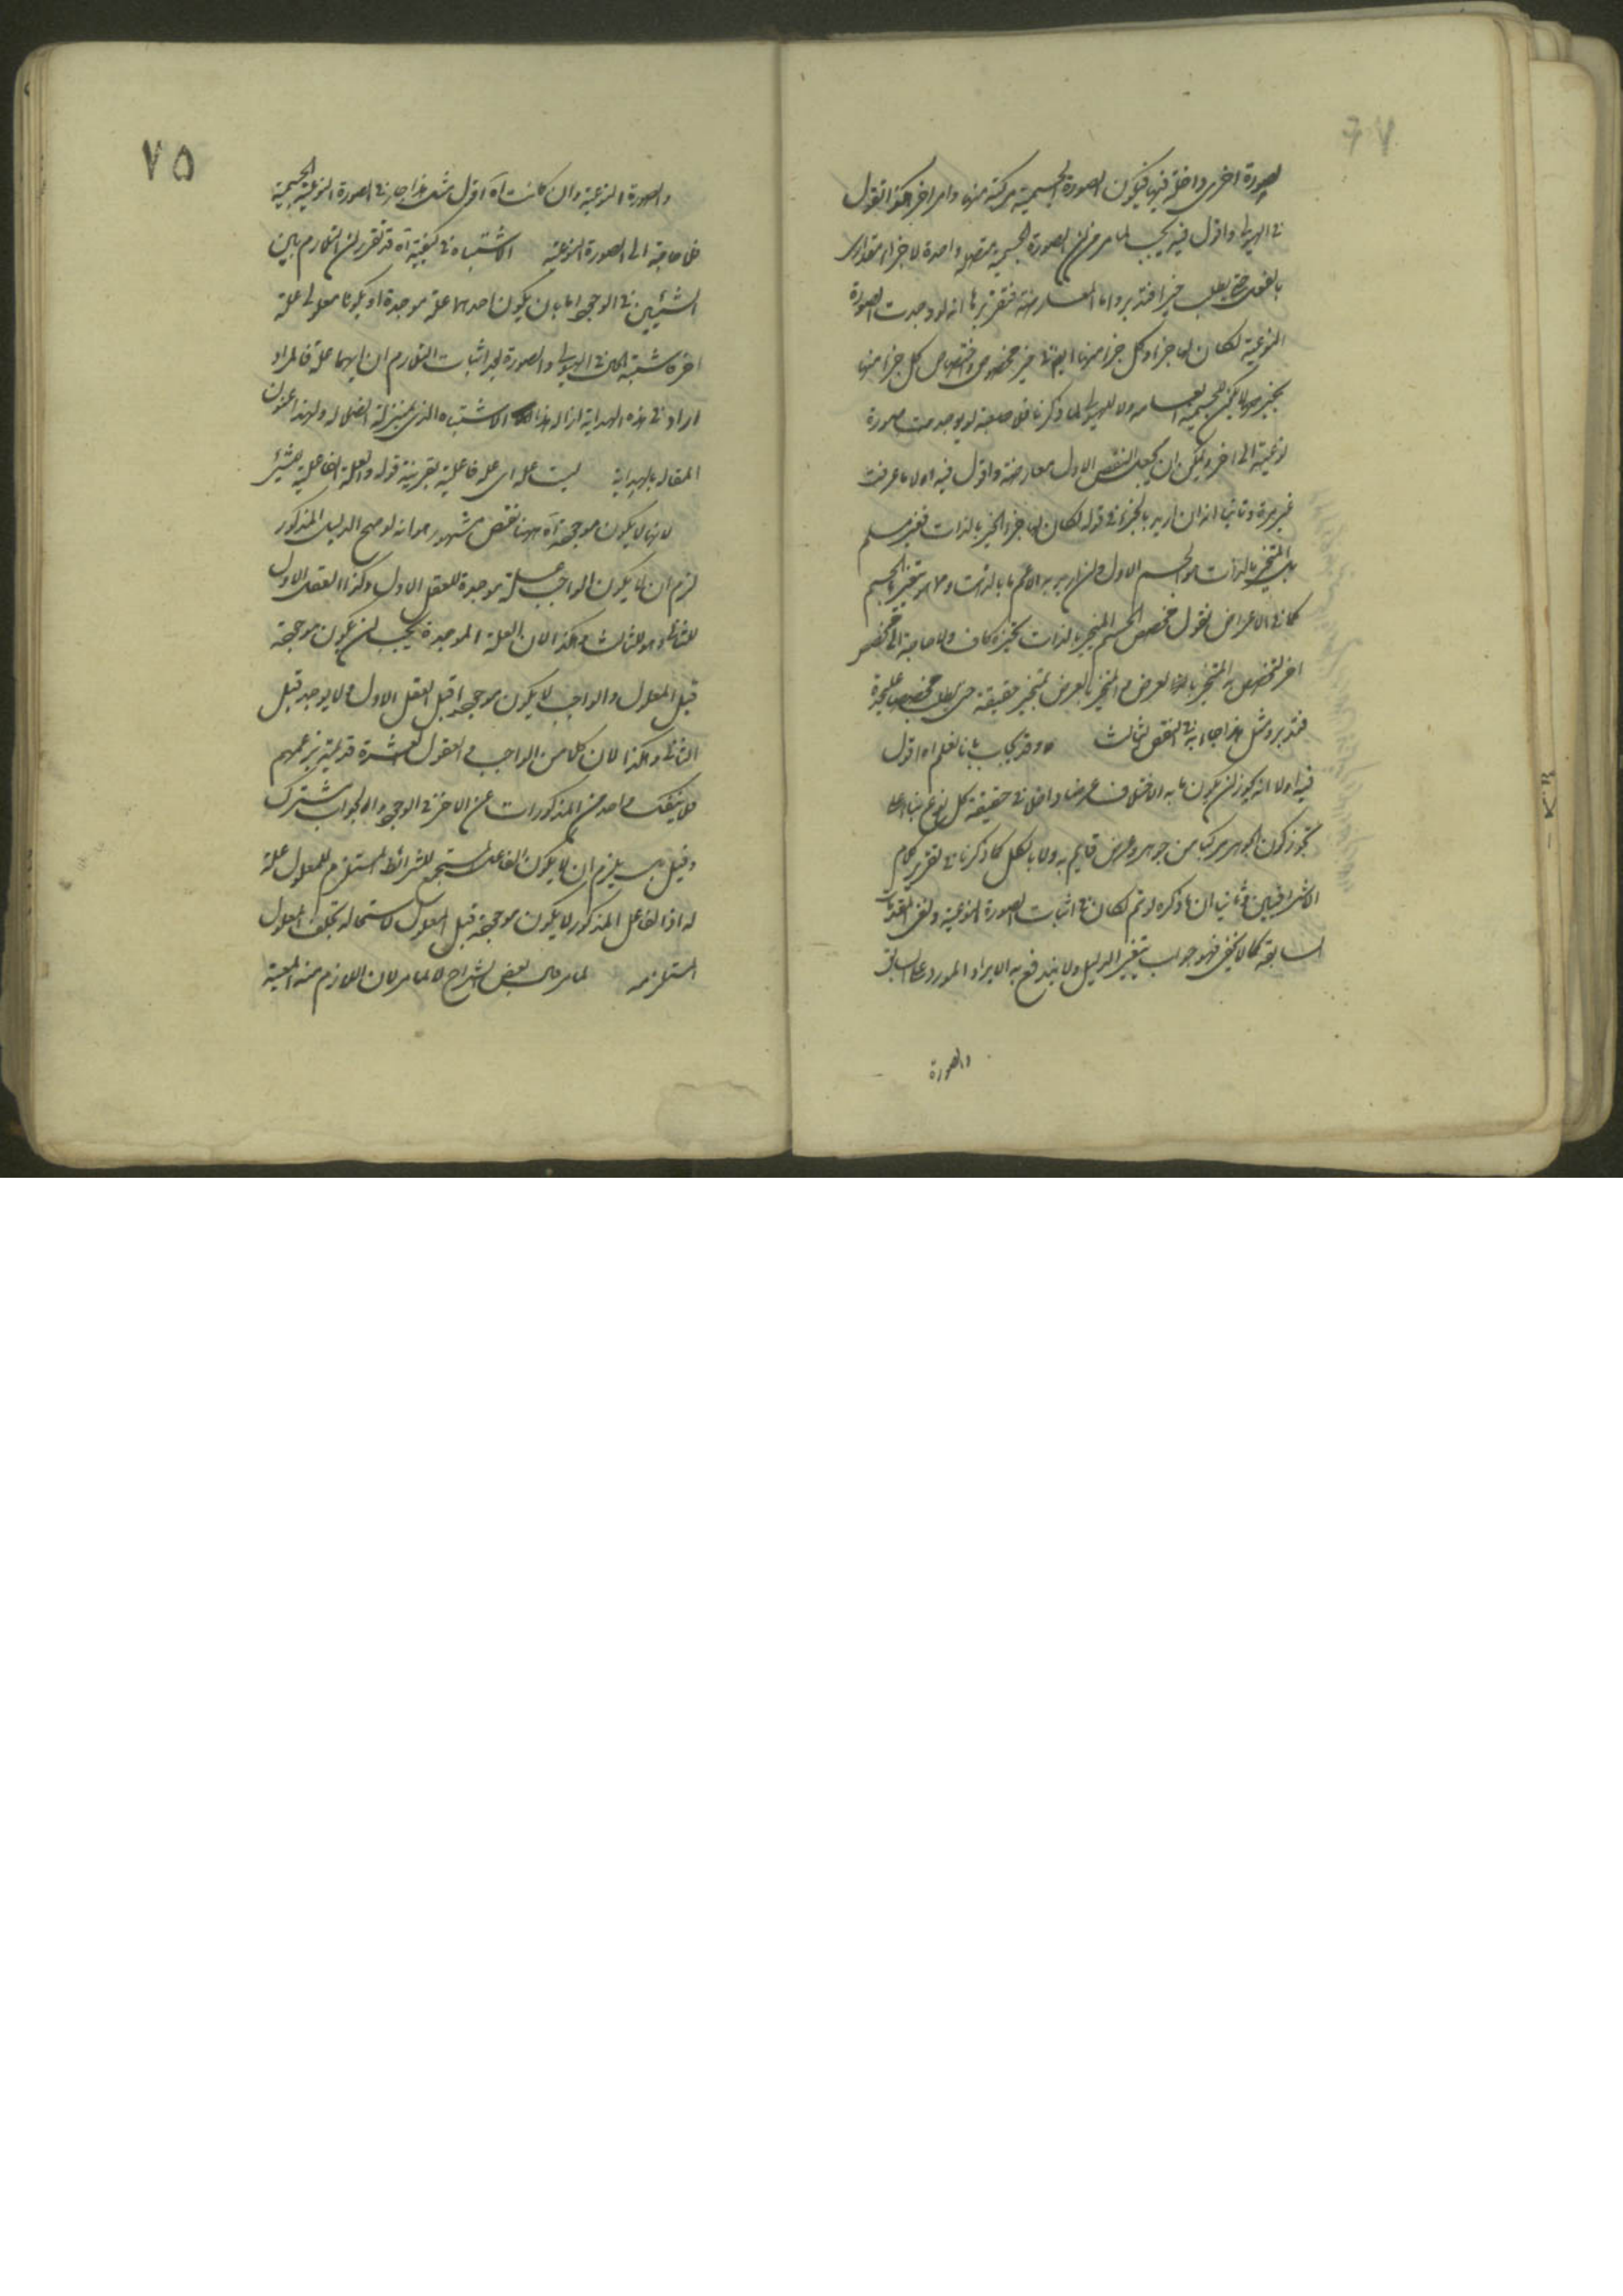 لصورة اخرى داخلة فيها فيكون الصورة الجسمية مركبة منها وامر اخر هكذا نقول
في الهيولى واقول فيه بحث لما مر من ان الصورة الجسمية متصلة واحدة لا جزء مقدارى
بالفعل حتى يطلب خيرا فتدبر واما المعارضة فتقريرها انه لو وجدت الصورة
النوعية لكان لها جزء وكل جزء منها ايضا في حيز مخصوص واختصاص كل جزء منها
بحيزه لا يكون للجسمية العامة ولا للهيولى لما ذكرنا فلو صح لم يوجد صورة
نوعية الى اخره ويمكن ان يجعل النقض الاول معارضة واقول فيه اولا ما عرفت
غير مرة وثانيا انه ان اريد بالجزء في قوله لكان لها جزء الحيز بالذات فغير مسلم
بل المتحيز بالذات هو الجسم الاول وان اريد به الاعم ما بالذات وما هو بتحيز الجسم
كما في الاعراض نقول مخصص الجسم المتحيز بالذات بحيزه كاف ولا حاجة الى مخصص
اخر لتخصيص المتحيز بالعرض والمتحيز بالعرض متحيز حقيقة حتى يطلب مخصص عليحدة
فتدبر ومثل هذا جاء في النقض الثالث وقد يجاب بانا نعلم اه اقول
فيه اولا انه يجوز ان يكون ما به الاختلاف عرضا داخلا في حقيقة كل نوع بناء على
تجوز كون الجوهر مركبا من جوهر وعرض قايم به ولا بالكل كما ذكرنا في تقرير كلام
الاشراقيين وثانيا ان ما ذكره لو تم لكان في اثبات الصورة النوعية ولغى المقدمات
السابقة كما لا يخفى فهو جواب بتغيير الدليل ولا يندفع به الايراد المورد على السابق
والصورة
٧٥
والصورة النوعية وان كانت آه اقول مثل هذا جار في الصورة النوعية الجسمية
فلا حاجة الى الصورة النوعية الاشتباه في كيفية آه قد تقرر ان التلازم بين
الشيئين في الوجود اما بان يكون احدهما علة موجدة او يكونا معلولى علة
اخره شبهة في الهيولى والصورة بعد اثبات التلازم ان ايهما علة فالمراد
اراد في هذه الهداية ازالة هذا الاشتباه الذى بمنزلة الضلالة ولهذا عنون
المقالة بالهداية ليست علة اى علة فاعلية بقرينة قوله والعلة الفاعلية للشئ
لانها لا يكون موجودة آه ههنا نقض مشهور هو انه لو صح الدليل المذكور
لزم ان لا يكون الواجب علة موجدة للعقل الاول وكذا العقل الاول
للثانى وهو للثالث وهكذا لان العلة الموجدة يجب ان يكون موجودة
قبل المعلول والواجب لا يكون موجودا قبل العقل الاول ولا يوجد قبل
الثانى وهكذا لان كلا من الواجب والعقول العشرة قديمة بزعمهم
فلا ينفك واحد من المذكورات عن الاخر في الوجود والجواب مشترك
وقيل بل يلزم ان لا يكون الفاعل المستجمع للشرائط المستلزم للمعلول علة
له اذ الفاعل المذكور لا يكون موجودة قبل المعلول لاستحالة تخلف المعلول
المستلزمه لما مر قال بعض الشراح لا لما مر لان اللازم منه المعية